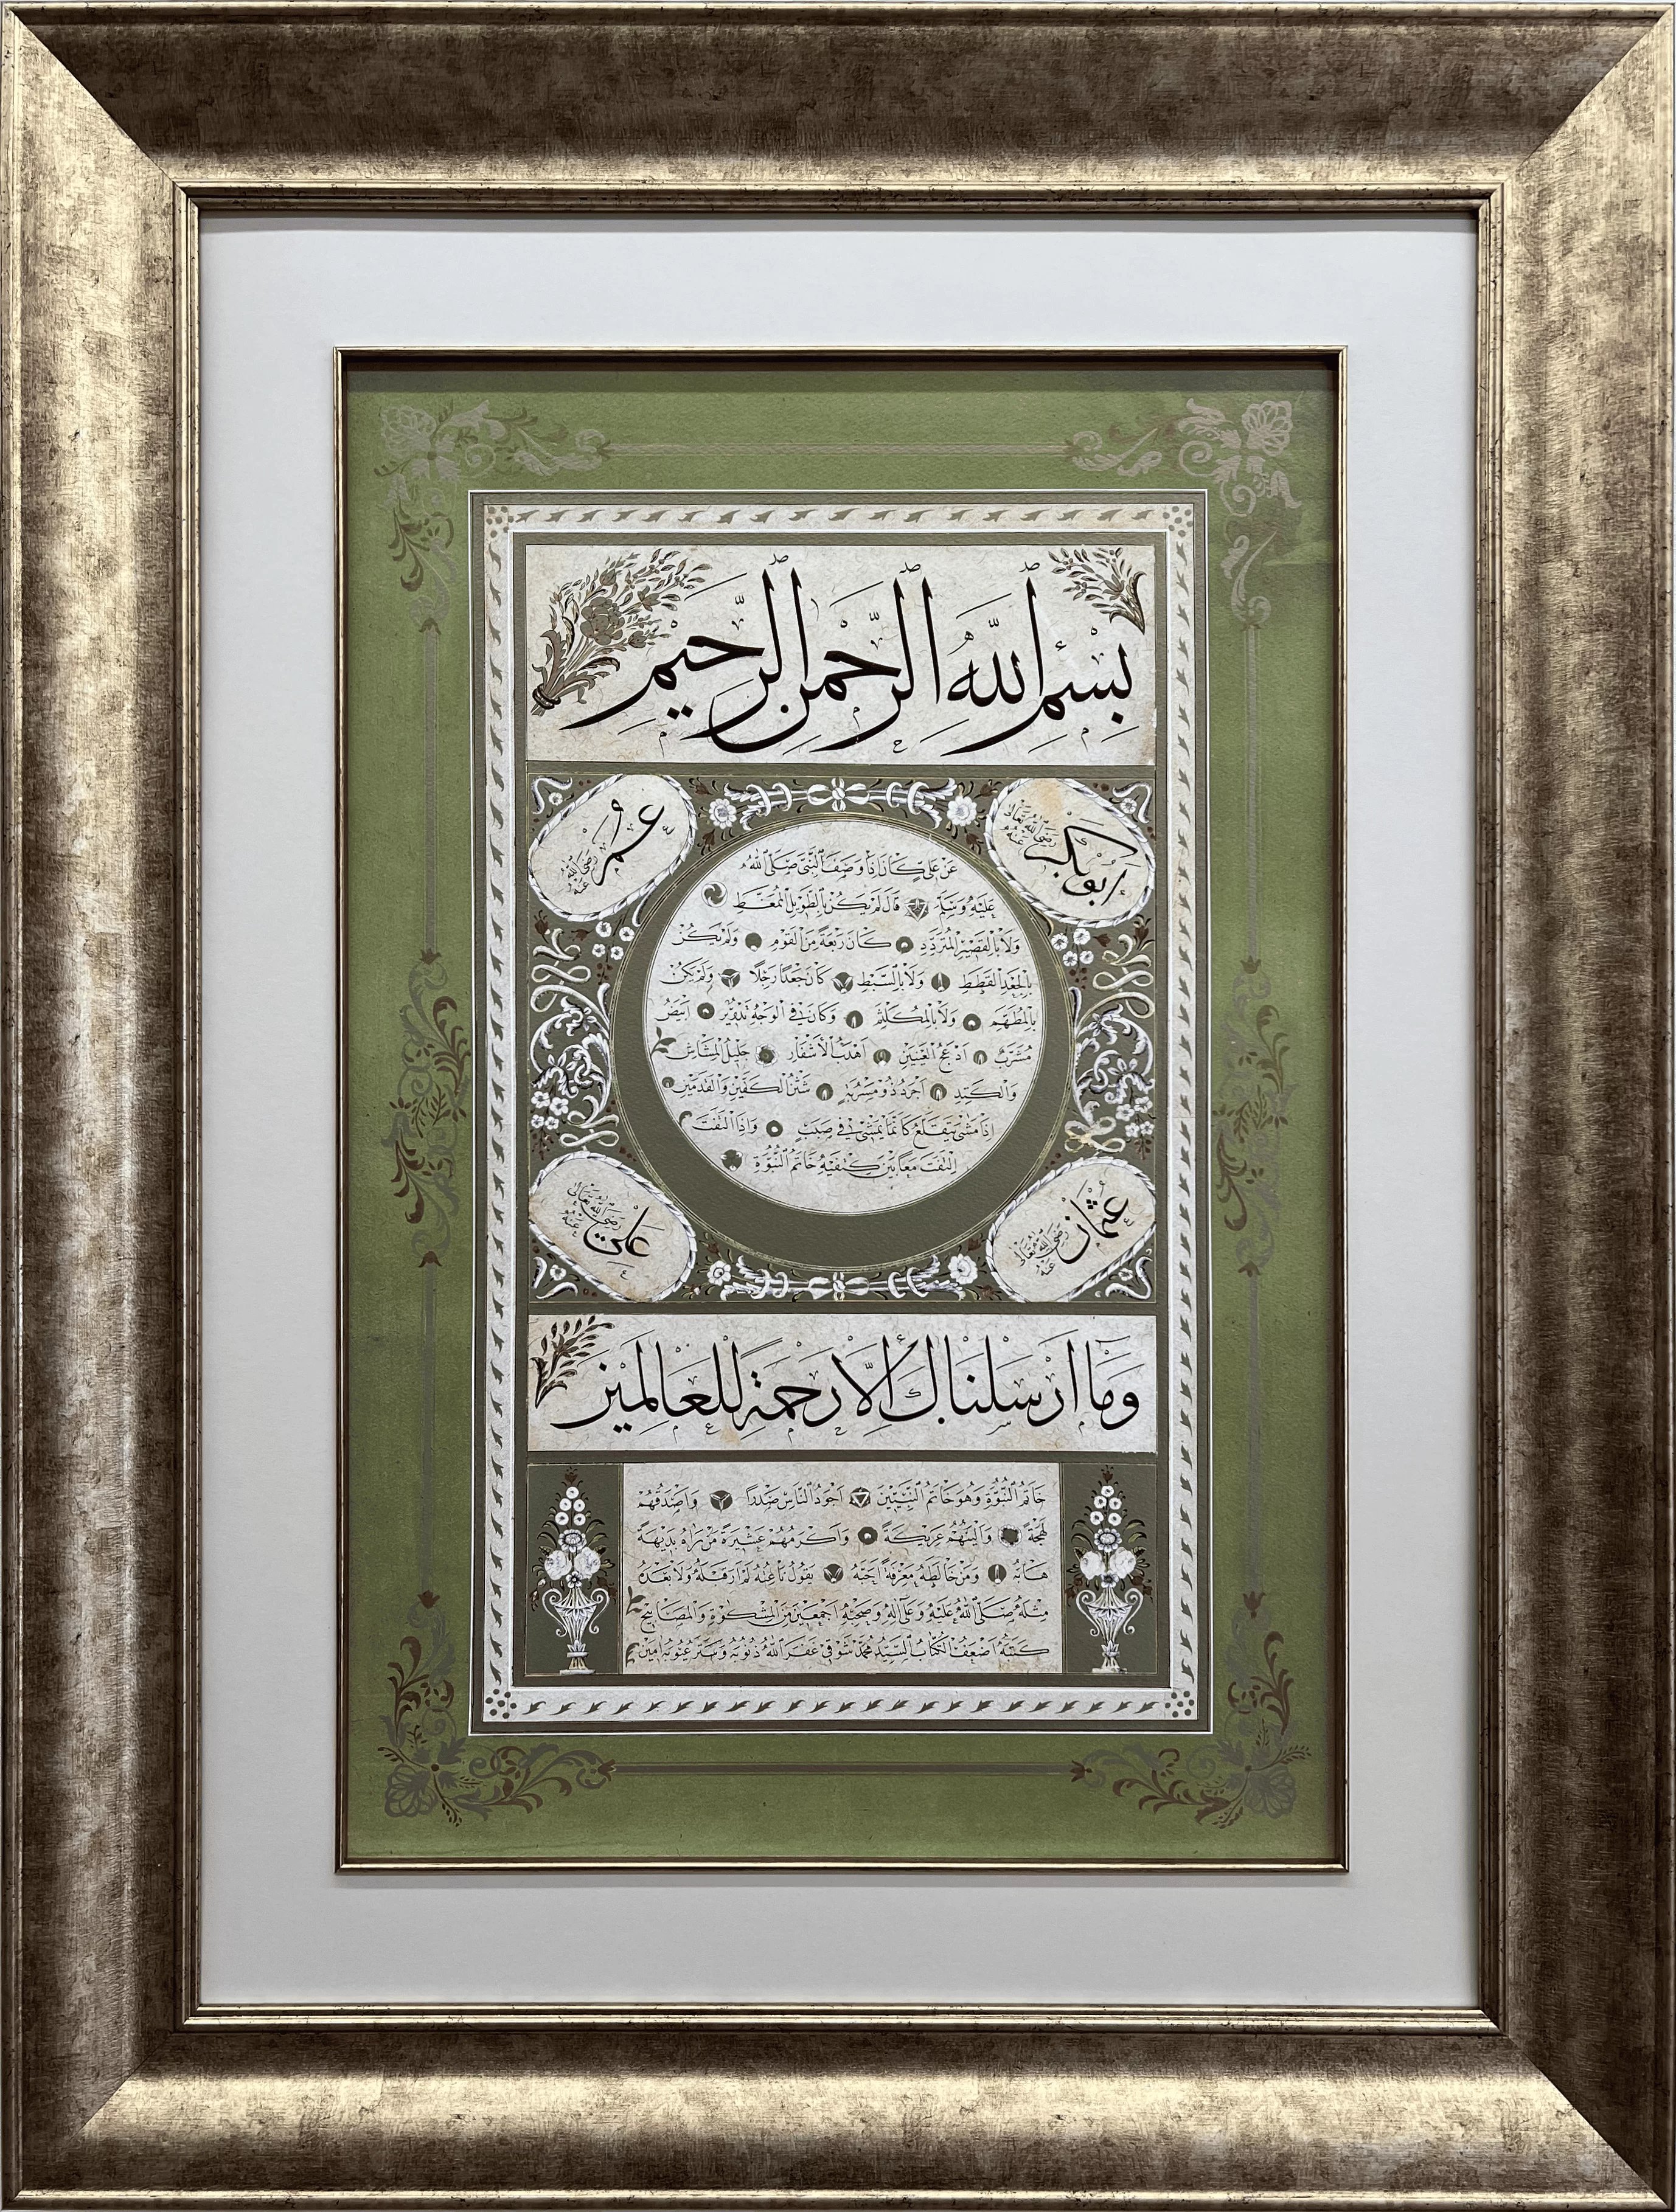 بِسْمِ اللهِ الرَّحْمٰنِ الرَّحِيمِ
ابو بكر رضى الله تعالى عنه
عمر رضى الله عنه
عَنْ عَلِىٍّ كَانَ اِذَا وَصَفَ النَّبِىَّ صَلَّى اللهُ
عَلَيْهِ وَسَلَّمَ قَالَ لَمْ يَكُنْ بِالطَّوِيلِ الْمُمَّغِطِ
وَلَا بِالْقَصِيرِ الْمُتَرَدِّدِ كَانَ رَبْعَةً مِنَ الْقَوْمِ وَلَمْ يَكُنْ
بِالْجَعْدِ الْقَطَطِ وَلَا بِالسَّبْطِ كَانَ جَعْدًا رَجِلًا وَلَمْ يَكُنْ
بِالْمُطَهَّمِ وَلَا بِالْمُكَلْثَمِ وَكَانَ فِى الْوَجْهِ تَدْوِيرٌ اَبْيَضُ
مُشْرَبٌ اَدْعَجُ الْعَيْنَيْنِ اَهْدَبُ الْاَشْفَارِ جَلِيلُ الْمُشَاشِ
وَالْكَتِدِ اَجْرَدُ ذُو مَسْرُبَةٍ شَثْنُ الْكَفَّيْنِ وَالْقَدَمَيْنِ
اِذَا مَشَى يَتَقَلَّعُ كَاَنَّمَا يَمْشِى فِى صَبَبٍ وَاِذَا الْتَفَتَ
الْتَفَتَ مَعًا بَيْنَ كَتِفَيْهِ خَاتَمُ النُّبُوَّةِ
عثمان رضى الله تعالى عنه
على رضى الله تعالى عنه
وَمَا اَرْسَلْنَاكَ اِلَّا رَحْمَةً لِلْعَالَمِينَ
خَاتَمُ النُّبُوَّةِ وَهُوَ خَاتَمُ النَّبِيِّينَ اَجْوَدُ النَّاسِ صَدْرًا وَاَصْدَقُهُمْ
لَهْجَةً وَاَلْيَنُهُمْ عَرِيكَةً وَاَكْرَمُهُمْ عَشِيرَةً مَنْ رَاٰهُ بَدِيهَةً
هَابَهُ وَمَنْ خَالَطَهُ مَعْرِفَةً اَحَبَّهُ يَقُولُ نَاعِتُهُ لَمْ اَرَ قَبْلَهُ وَلَا بَعْدَهُ
مِثْلَهُ صَلَّى اللهُ عَلَيْهِ وَعَلَى اٰلِهِ وَصَحْبِهِ اَجْمَعِينَ مِنَ الْمِشْكٰوةِ وَالْمَصَابِيحِ
كَتَبَهُ اَضْعَفُ الْكُتَّابِ السَّيِّدُ مُحَمَّدْ شَوْقِى غَفَرَ اللهُ ذُنُوبَهُ وَسَتَرَ عُيُوبَهُ اٰمِينْ